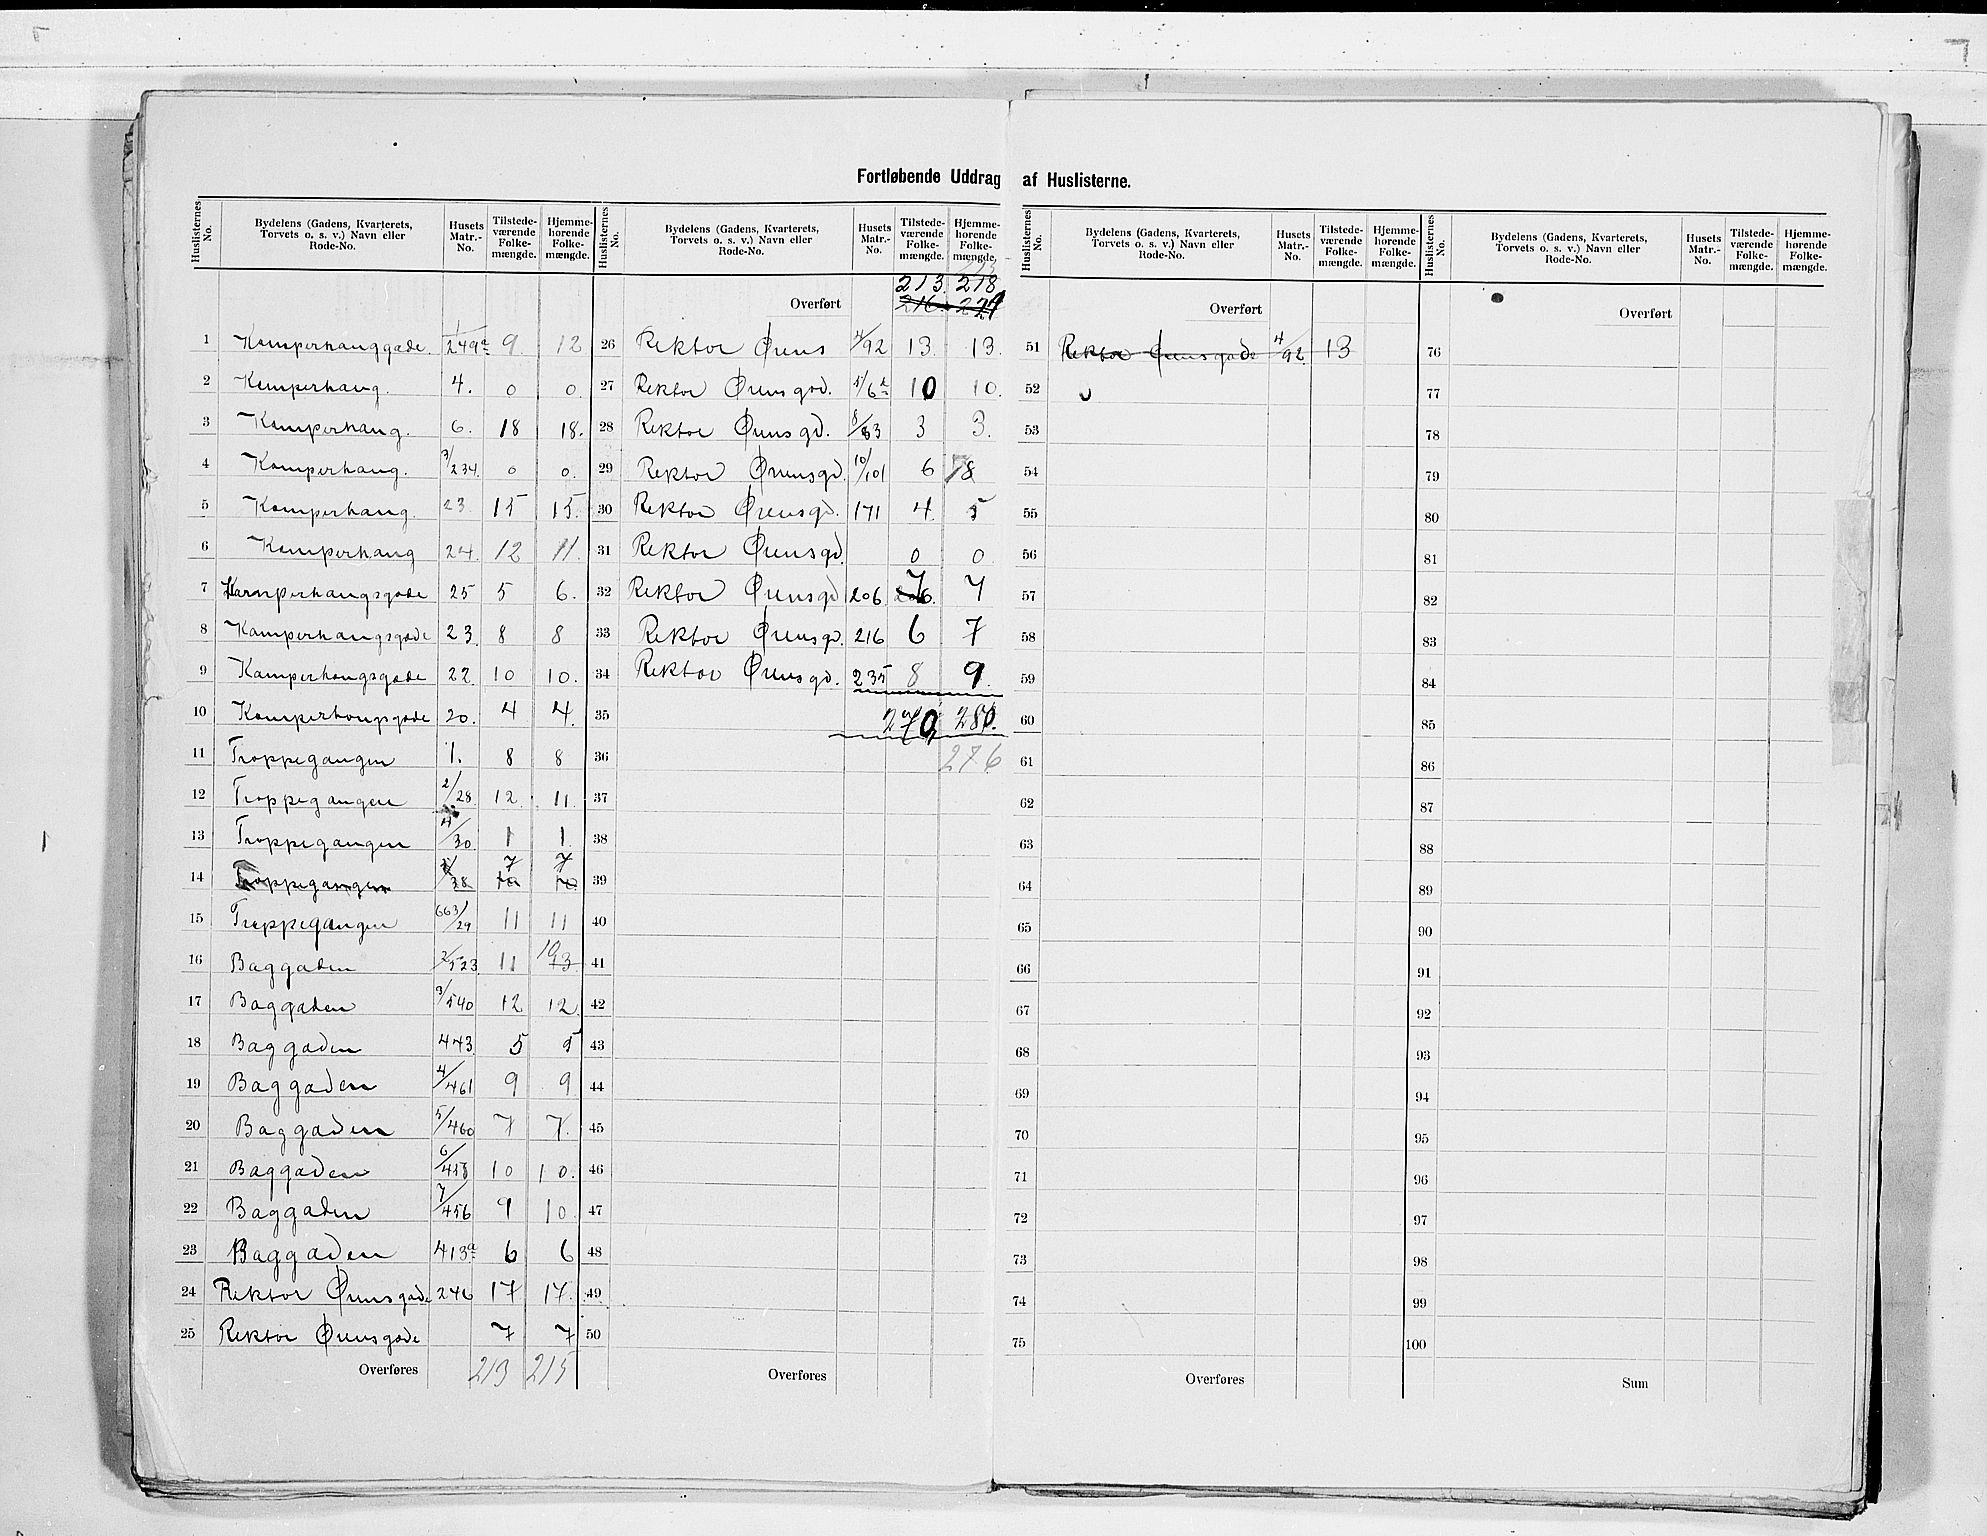 Fortløbende Uddrag af Huslisterne.
Huslisternes No. Bydelens (Gadens, Kvarterets, Torvets o. s. v.) Navn eller Rode-No. Husets Matr.-No. Tilstedeværende Folkemængde. Hjemmehørende Folkemængde.
1 Kamperhauggade. 1/249a 9 12
2 Kamperhaug. 4. 0 0.
3 Kamperhaug. 6. 18 18.
4 Kamperhaug. 3/234. 0 0.
5 Kamperhaug 23. 15 15.
6 Kamperhaug 24. 12 11.
7 Kamperhaugsgade 25 5 6.
8 Kamperhaugsgade 23. 8 8
9 Kamperhaugsgade 22. 10 10.
10 Kamperhaugsgade 20. 4 4.
11 Troppegangen 1. 8 8
12 Troppegangen 2/28 12. 11.
13 Troppegangen 4/30 1 1.
14 Troppegangen /38 7 7
15 Troppegangen 663/29 11 11
16 Baggaden 2/523 11 10 13
17 Baggaden 3/540 12 12
18 Baggaden 443. 5 5
19 Baggaden 4/461 9 9.
20 Baggaden 5/460 7 7.
21 Baggaden 6/458 10 10.
22 Baggaden 7/456 9 10.
23 Baggaden 413a 6 6
24 Rektor Ørensgade 246 17 17.
25 Rektor Ørensgade 7 7
Overføres 213 215
Huslisternes No. Bydelens (Gadens, Kvarterets, Torvets o. s. v.) Navn eller Rode-No. Husets Matr.-No. Tilstedeværende Folkemængde. Hjemmehørende Folkemængde.
213. 218
Overført 216.
26 Rektor Ørens 4/92 13. 13.
27 Rektor Ørensgad. 5/6a 10 10.
28 Rektor Ørensgd. 8/83 3 3.
29 Rektor Ørensgd. 10/101 6 8
30 Rektor Ørensgd. 171 4. 5
31 Rektor Ørensgd. 0 0
32 Rektor Ørensgd 206. 7 7
33 Rektor Ørensgd. 216 6 7
34 Rektor Ørensgd. 235 8 9.
35 270 280.
36 276
37
38
39
40
41
42
43
44
45
46
47
48
49
50
Overføres
Huslisternes No. Bydelens (Gadens, Kvarterets, Torvets o. s. v.) Navn eller Rode-No. Husets Matr.-No. Tilstedeværende Folkemængde. Hjemmehørende Folkemængde.
Overført
51 Rektor Ørensgade 4/92 13
52
53
54
55
56
57
58
59
60
61
62
63
64
65
66
67
68
69
70
71
72
73
74
75
Overføres
Huslisternes No. Bydelens (Gadens, Kvarterets, Torvets o. s. v.) Navn eller Rode-No. Husets Matr.-No. Tilstedeværende Folkemængde. Hjemmehørende Folkemængde.
Overført
76
77
78
79
80
81
82
83
84
85
86
87
88
89
90
91
92
93
94
95
96
97
98
99
100
Sum